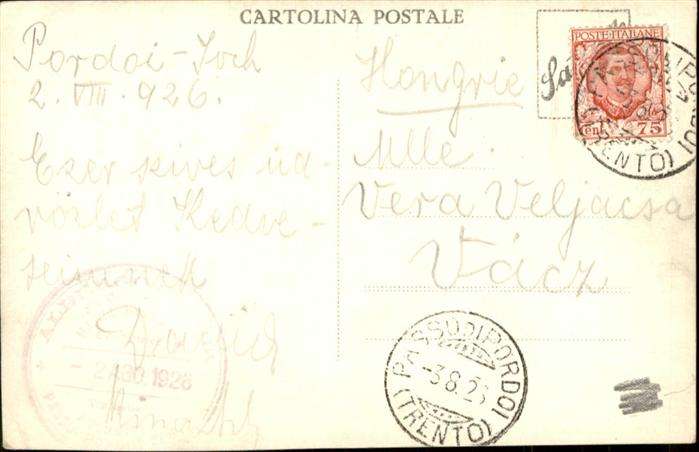 CARTOLINA POSTALE
Pordoi-Joch
2. VIII. 926.
Ezer szives üd-
vözlet Kedve-
seimnek
- 2 AGO 1926
Hongrie
Mlle.
Vera Veljacsa
Vácz
POSTE ITALIANE
Cent. 75
PASSO DI PORDOI
(TRENTO)
PASSO DI PORDOI
-3.8.26
(TRENTO)